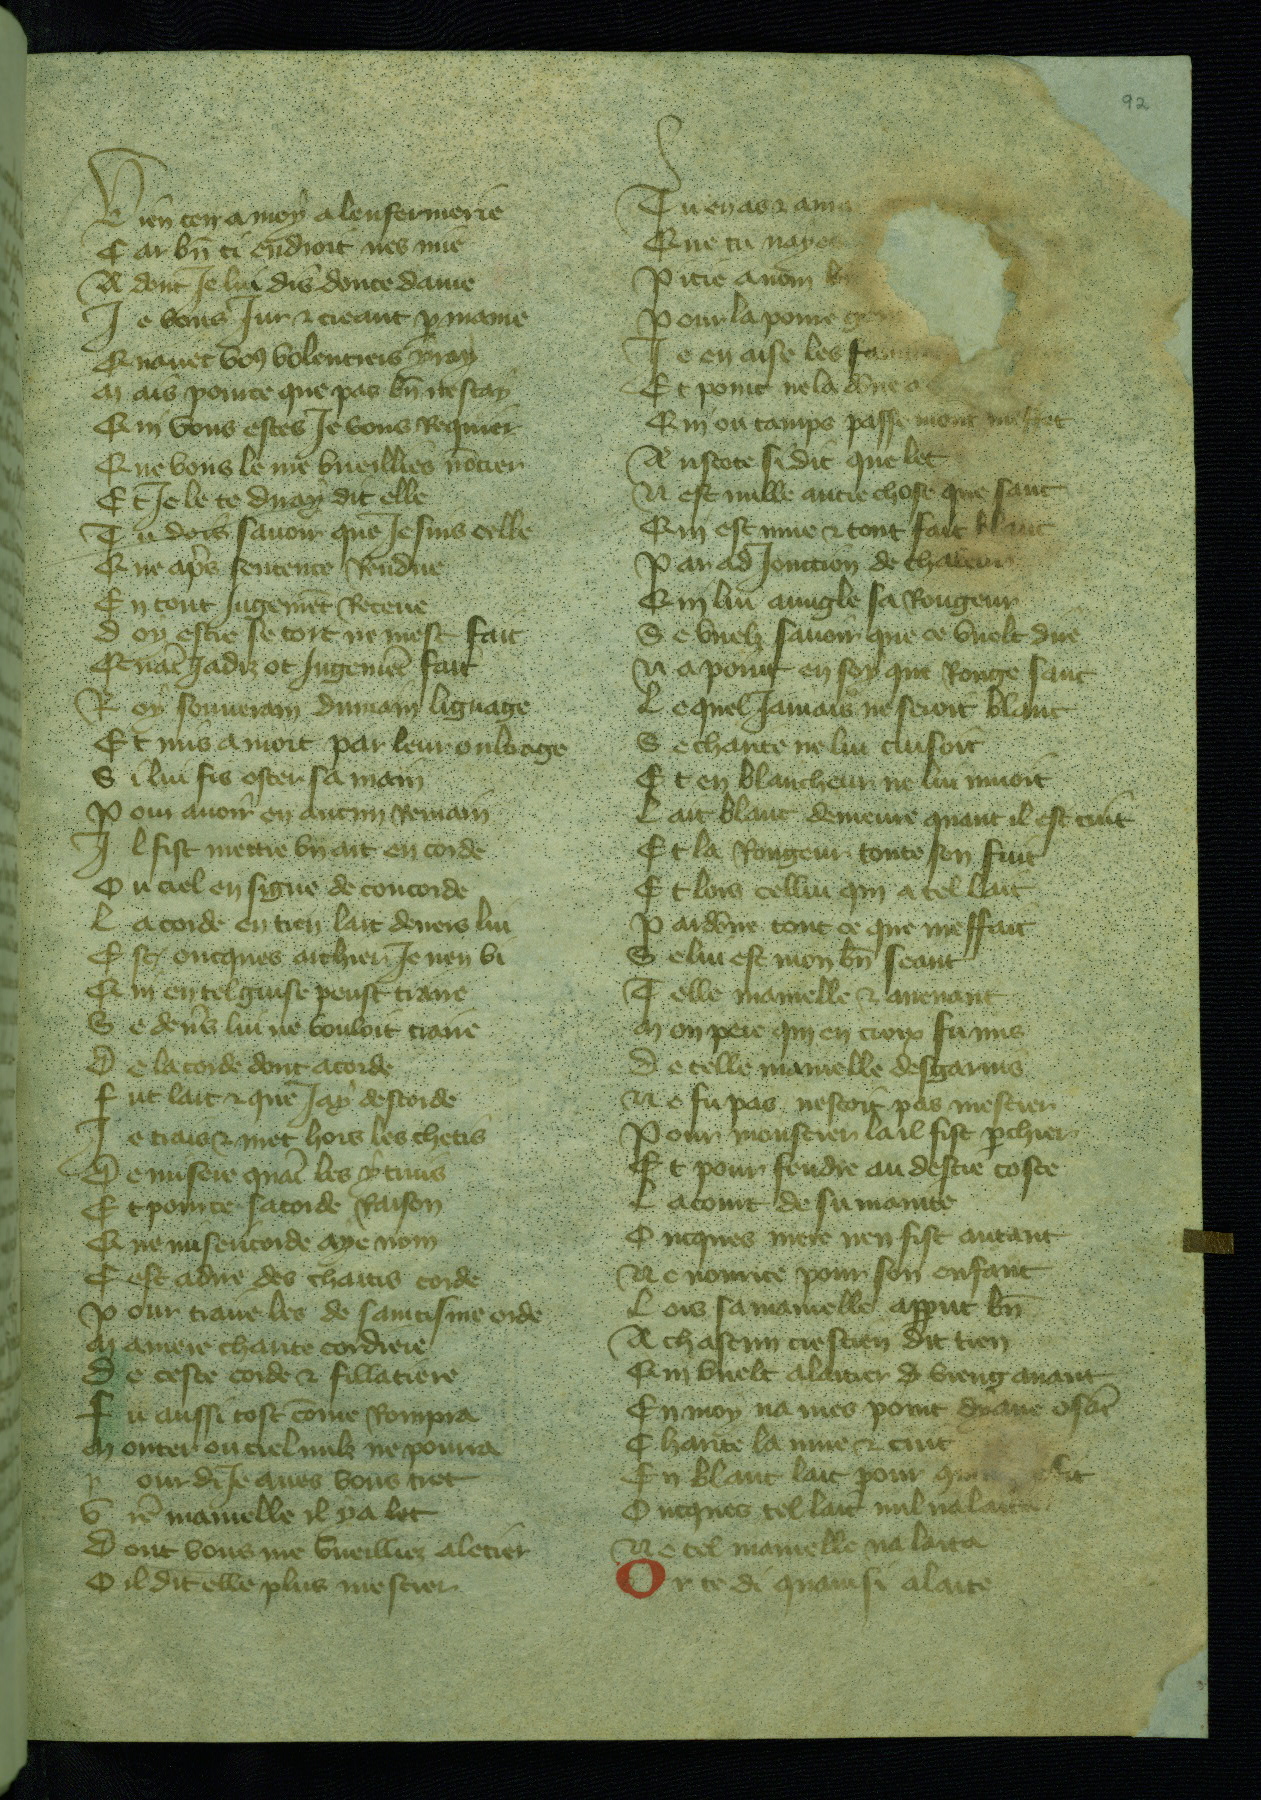 92
Vien ten a moy a lenfermerie
Car bn̄ ci endroit nes mie
A dont Je lui dis douce dame
Je vous Jur & creant p mame
Quauec vo9 volentiers yray
Mais pource que pas bn̄ ne scay
Qui vous estes Je vous Requier
Que vous le me vueillies nōcier
Et Je le te diray dit elle
Tu dois sauoir que Je suis celle
Que apres sentence Rendue
En tout Jugemēt Receue
Doy estre se tort ne mest fait
Quāt Jadiz ot Jugemēt fait
Roy souuerain dumain lignage
Et mis a mort par leur oultrage
Si lui fis oster sa main
Pour auoir en aucun Remain
Il fist mettre vn arc en corde
Ou ciel en signe de concorde
La corde en tien lait deuers lui
Est oncques archier Je nen vi
Qui en tel guise peust traire
Se deuers lui ne vouloit traire
De la corde dont acorde
Fut lait & que Jay descorde
Je trais & met hors les chetis
De misere quāt les y truis
Et pource sacorde Raison
Que misericorde aye nom
Cest a dire des chaitis corde
Pour traire les de santisme orde
Ma mere charite cordiere
De ceste corde & fillatiere
Fu aussi tost cōme Rompra
Monter ou ciel nulz ne pourra
Pour di Je aues vous tret
Vre mamelle il y a let
Dont vous me vueilliez aletier
Oil dit elle plus mestier
Tu en as &
Que tu nayes
Pitie a nom
Pour la pome
Je en aise les
Et point ne la
Qui ou tamps passe mont
Aristote si dit que let
Nest nulle autre chose que sanc
Qui est mue & tout fait blanc
Par ad Jonction de chaleur
Qui lui auugle sa Rougeur
Se vuelz sauoir que ce vuelt dire
Na point en soy que Rouge sanc
Lequel Jamais ne seroit blanc
Se charite ne lui cuisoit
Et en blancheur ne lui muoit
Lait blanc demeure quant il est cuit
Et la Rougeur toute sen fuit
Et lors cellui qui a tel lait
Pardōne tout ce que meffait
Se lui est mon bn̄ seant
Telle mamelle & auenant
Mon pere qui en croix fu mis
De telle mamelle desgarnis
Ne fu pas nestoit pas mestier
Pour moustrer la il fist perchier
Et pour fendre au destre coste
La cout de su manite
Oncques mere nen fist autant
Ne nourrice pour son enfant
Lors sa mamelle apput bn̄
A chascun crestien dit tien
Qui vuelt alaitier viengn auant
En moy na mes point
Charite la mue & cuit
En blanc lait pour
Oncques tel lait nul nalaita
Ne tel mamelle nalaita
Or te di quainsi alaite